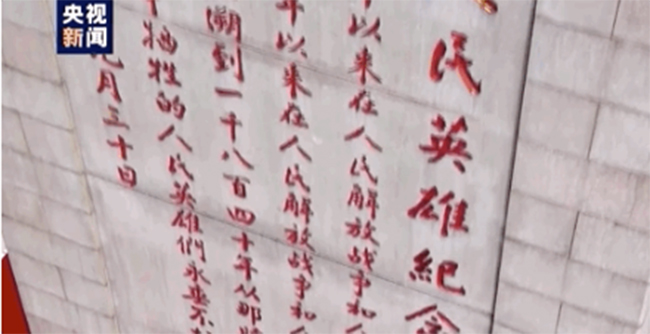 央视
新闻
民英雄紀
年以来在人民解放战争和人
年以来在人民解放战争和人
溯到一千八百四十年从那時
牺牲的人民英雄們永垂不朽
九月三十日